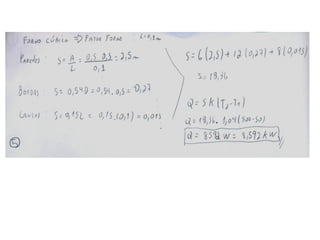 FORNO CÚBICO => FATOR FORMA L=0,1m
PAREDES: S= A/L = 0,5 0,5/0,1 = 2,5m
BORDAS: S= 0,54D = 0,54.0,5 = 0,27
CANTOS: S= 0,15L = 0,15.(0,1) = 0,015
S= 6(2,5)+12(0,27)+8(0,015)
S= 18,36
Q= S K (T2-T1)
Q= 18,36. 1,04(500-50)
Q= 8592 W = 8,592 KW
5